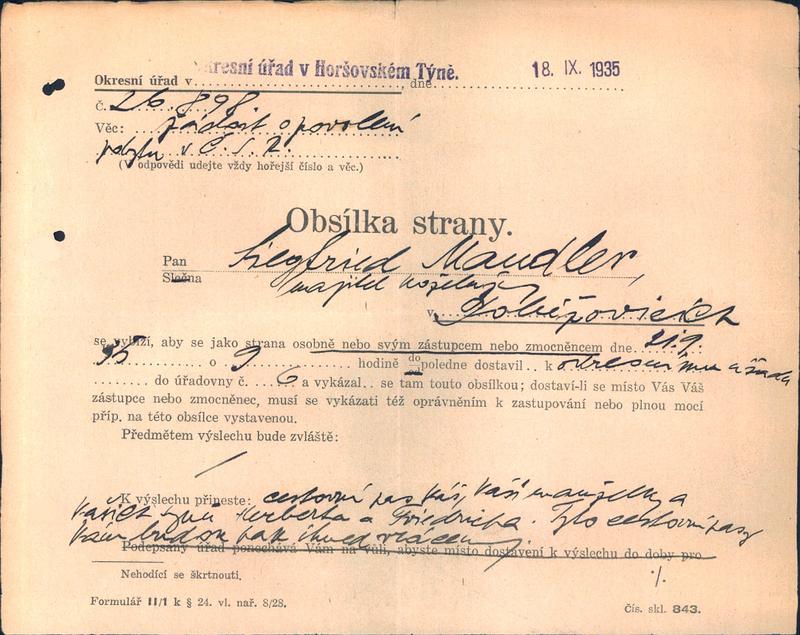 Okresní úřad v Horšovském Týně.
18. IX. 1935
Okresní úřad v dne
č. 26.898.
Věc: žádost o povolení
pobytu v Č.S.R.
(V odpovědi udejte vždy hořejší číslo a věc.)
Obsílka strany.
Pan Siegfried Mandler,
Slečna
majitel koželužny
v
se vybízí, aby se jako strana osobně nebo svým zástupcem nebo zmocněncem dne 21.9.
35 o 9 hodině do poledne dostavil k okresnímu úřadu
do úřadovny č. 6 a vykázal se tam touto obsílkou; dostaví-li se místo Vás Váš
zástupce nebo zmocněnec, musí se vykázati též oprávněním k zastupování nebo plnou mocí
příp. na této obsílce vystavenou.
Předmětem výslechu bude zvláště:
K výslechu přineste: cestovní pas Váš, Vaší manželky a
Vašich synů Herberta a Friedricha. Tyto cestovní pasy
Vám budou pak ihned vráceny.
Podepsaný úřad ponechává Vám na vůli, abyste místo dostavení k výslechu do doby pro
Nehodící se škrtnouti.
./.
Formulář II/1 k § 24. vl. nař. 8/28.
Čís. skl. 843.